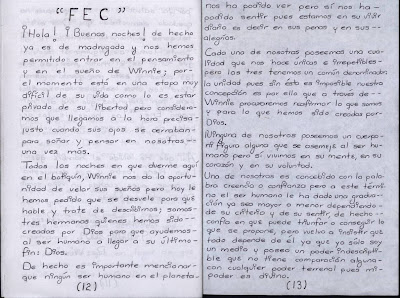 "FEC"
¡Hola! ¡Buenas noches! de hecho
ya es de madrugada y nos hemos
permitido entrar en el pensamiento
y en el sueño de Winnie; por
el momento está en una etapa muy
difícil de su vida como lo es estar
privado de su libertad pero considere-
mos que llegamos a la hora precisa-
justo cuando sus ojos se cerraban-
para soñar y pensar en nosotros-
una vez más.
Todas las noches en que duerme aquí
en el botiquín, Winnie nos da la oportu-
nidad de velar sus sueños pero hoy le
hemos pedido que se desvele para que
hable y trate de describirnos; somos-
tres hermanas quienes hemos sido-
creadas por Dios para que ayudemos-
al ser humano a llegar a su último-
fin: Dios.
De hecho es importante mencionar-
que ningún ser humano en el planeta-
(12)
nos ha podido ver pero sí nos ha-
podido sentir pues estamos en su vivir
diario es decir en sus penas y en sus--
alegrías.
Cada una de nosotras poseemos una cua-
lidad que nos hace únicas e irrepetibles-
pero las tres tenemos un común denominador:
la unidad pues sin esta es imposible nuestra
concepción es por ello que a través de--
Winnie procuraremos reafirmar lo que somos
y para lo que hemos sido creadas por
Dios.
¡Ninguna de nosotras poseemos un cuerpo-
ni figura alguna que se asemeje al ser hu-
mano pero sí vivimos en su mente, en su
corazón y en su voluntad.
Una de nosotras es concebida con la pala-
bra creencia o confianza pero a este térmi-
no el ser humano le ha dado una gradación-
ya sea mayor o menor dependiendo-
de su criterio y de su sentir, de hecho
confía en que puede triunfar o conseguir lo
que se propone, pero vuelvo a insistir que
todo depende de él ya que yo sólo soy
un medio y poseo un poder indescripti-
ble que no tiene comparación alguna-
con cualquier poder terrenal pues mi-
poder es divino.
(13)